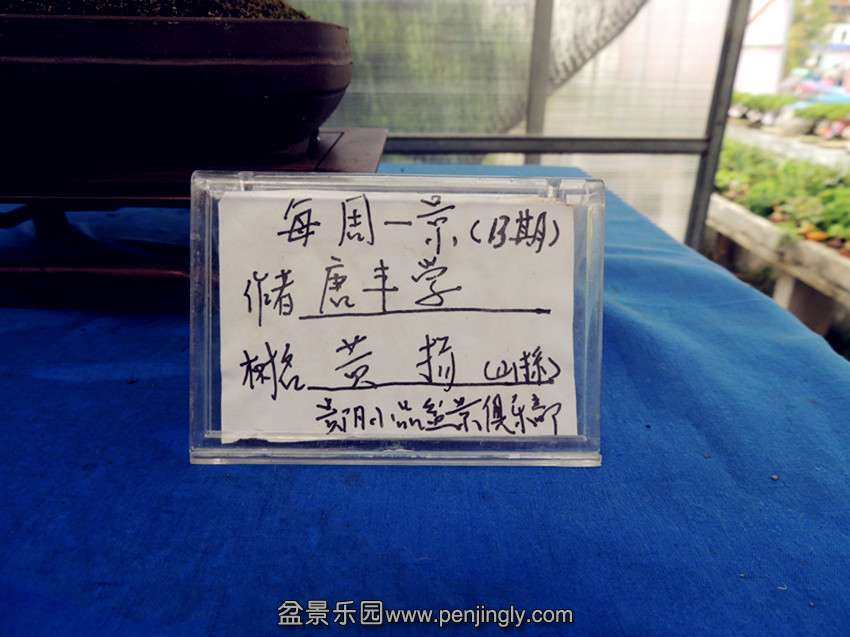 每周一景(13期)
作者 唐丰学
树名 黄扬(山採)
贵阳小品盆景俱乐部
盆景乐园www.penjingly.com